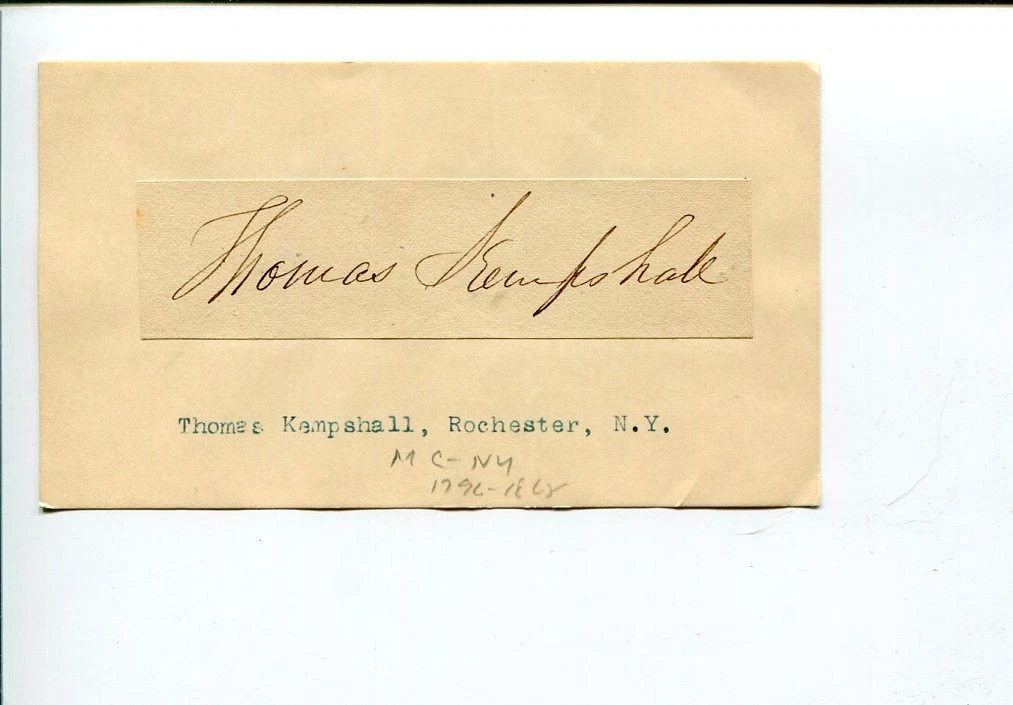 Thomas Kempshall
Thomas Kempshall, Rochester, N.Y.
M C - NY